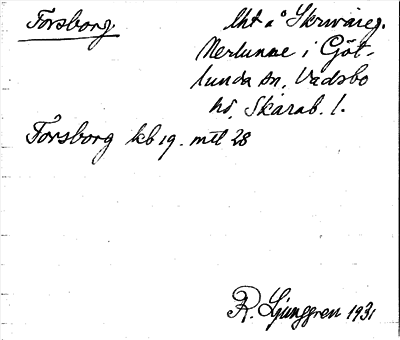 Forsborg
lht å Skriváreg.
Nerlunne i Göt-
lunda sn, Vadsbo
hd, Skarab. l.
Forsborg kb 19. mtl 28
R. Ljunggren 1931